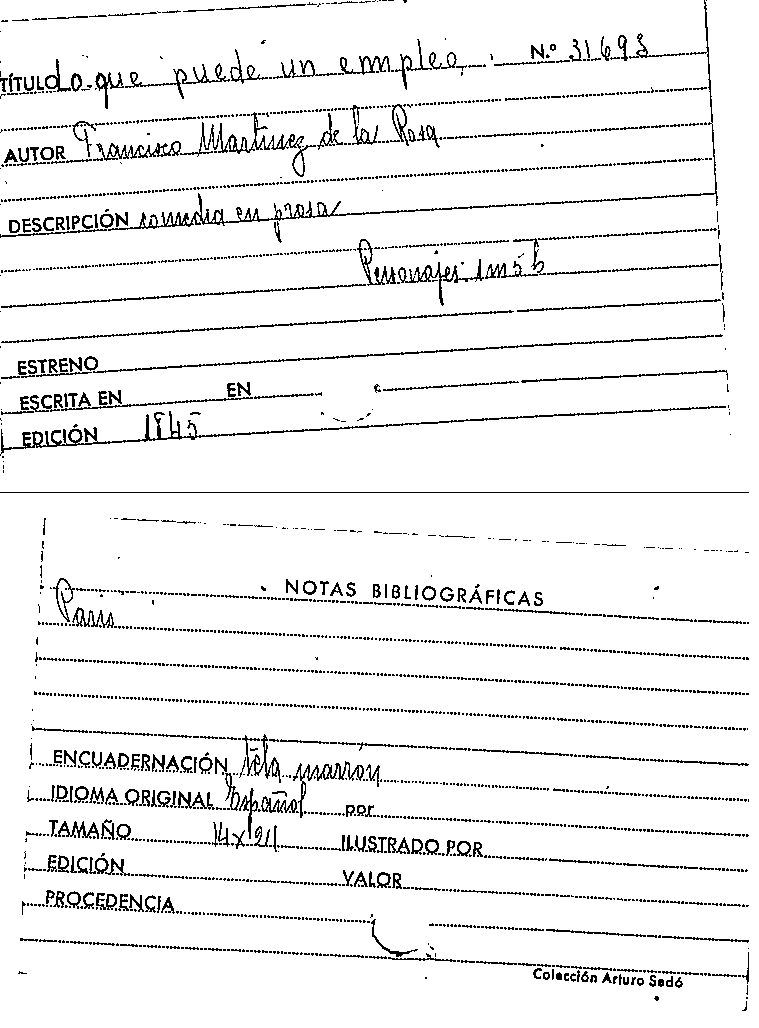 TÍTULO Lo que puede un empleo. N.º 31693
AUTOR Francisco Martinez de la Rosa
DESCRIPCIÓN comedia en prosa
Personajes: 1m 5 h
ESTRENO
ESCRITA EN EN
EDICIÓN 1845
NOTAS BIBLIOGRÁFICAS
Paris
ENCUADERNACIÓN tela marrón
IDIOMA ORIGINAL Español por
TAMAÑO 14x21 ILUSTRADO POR
EDICIÓN VALOR
PROCEDENCIA
Colección Arturo Sedó